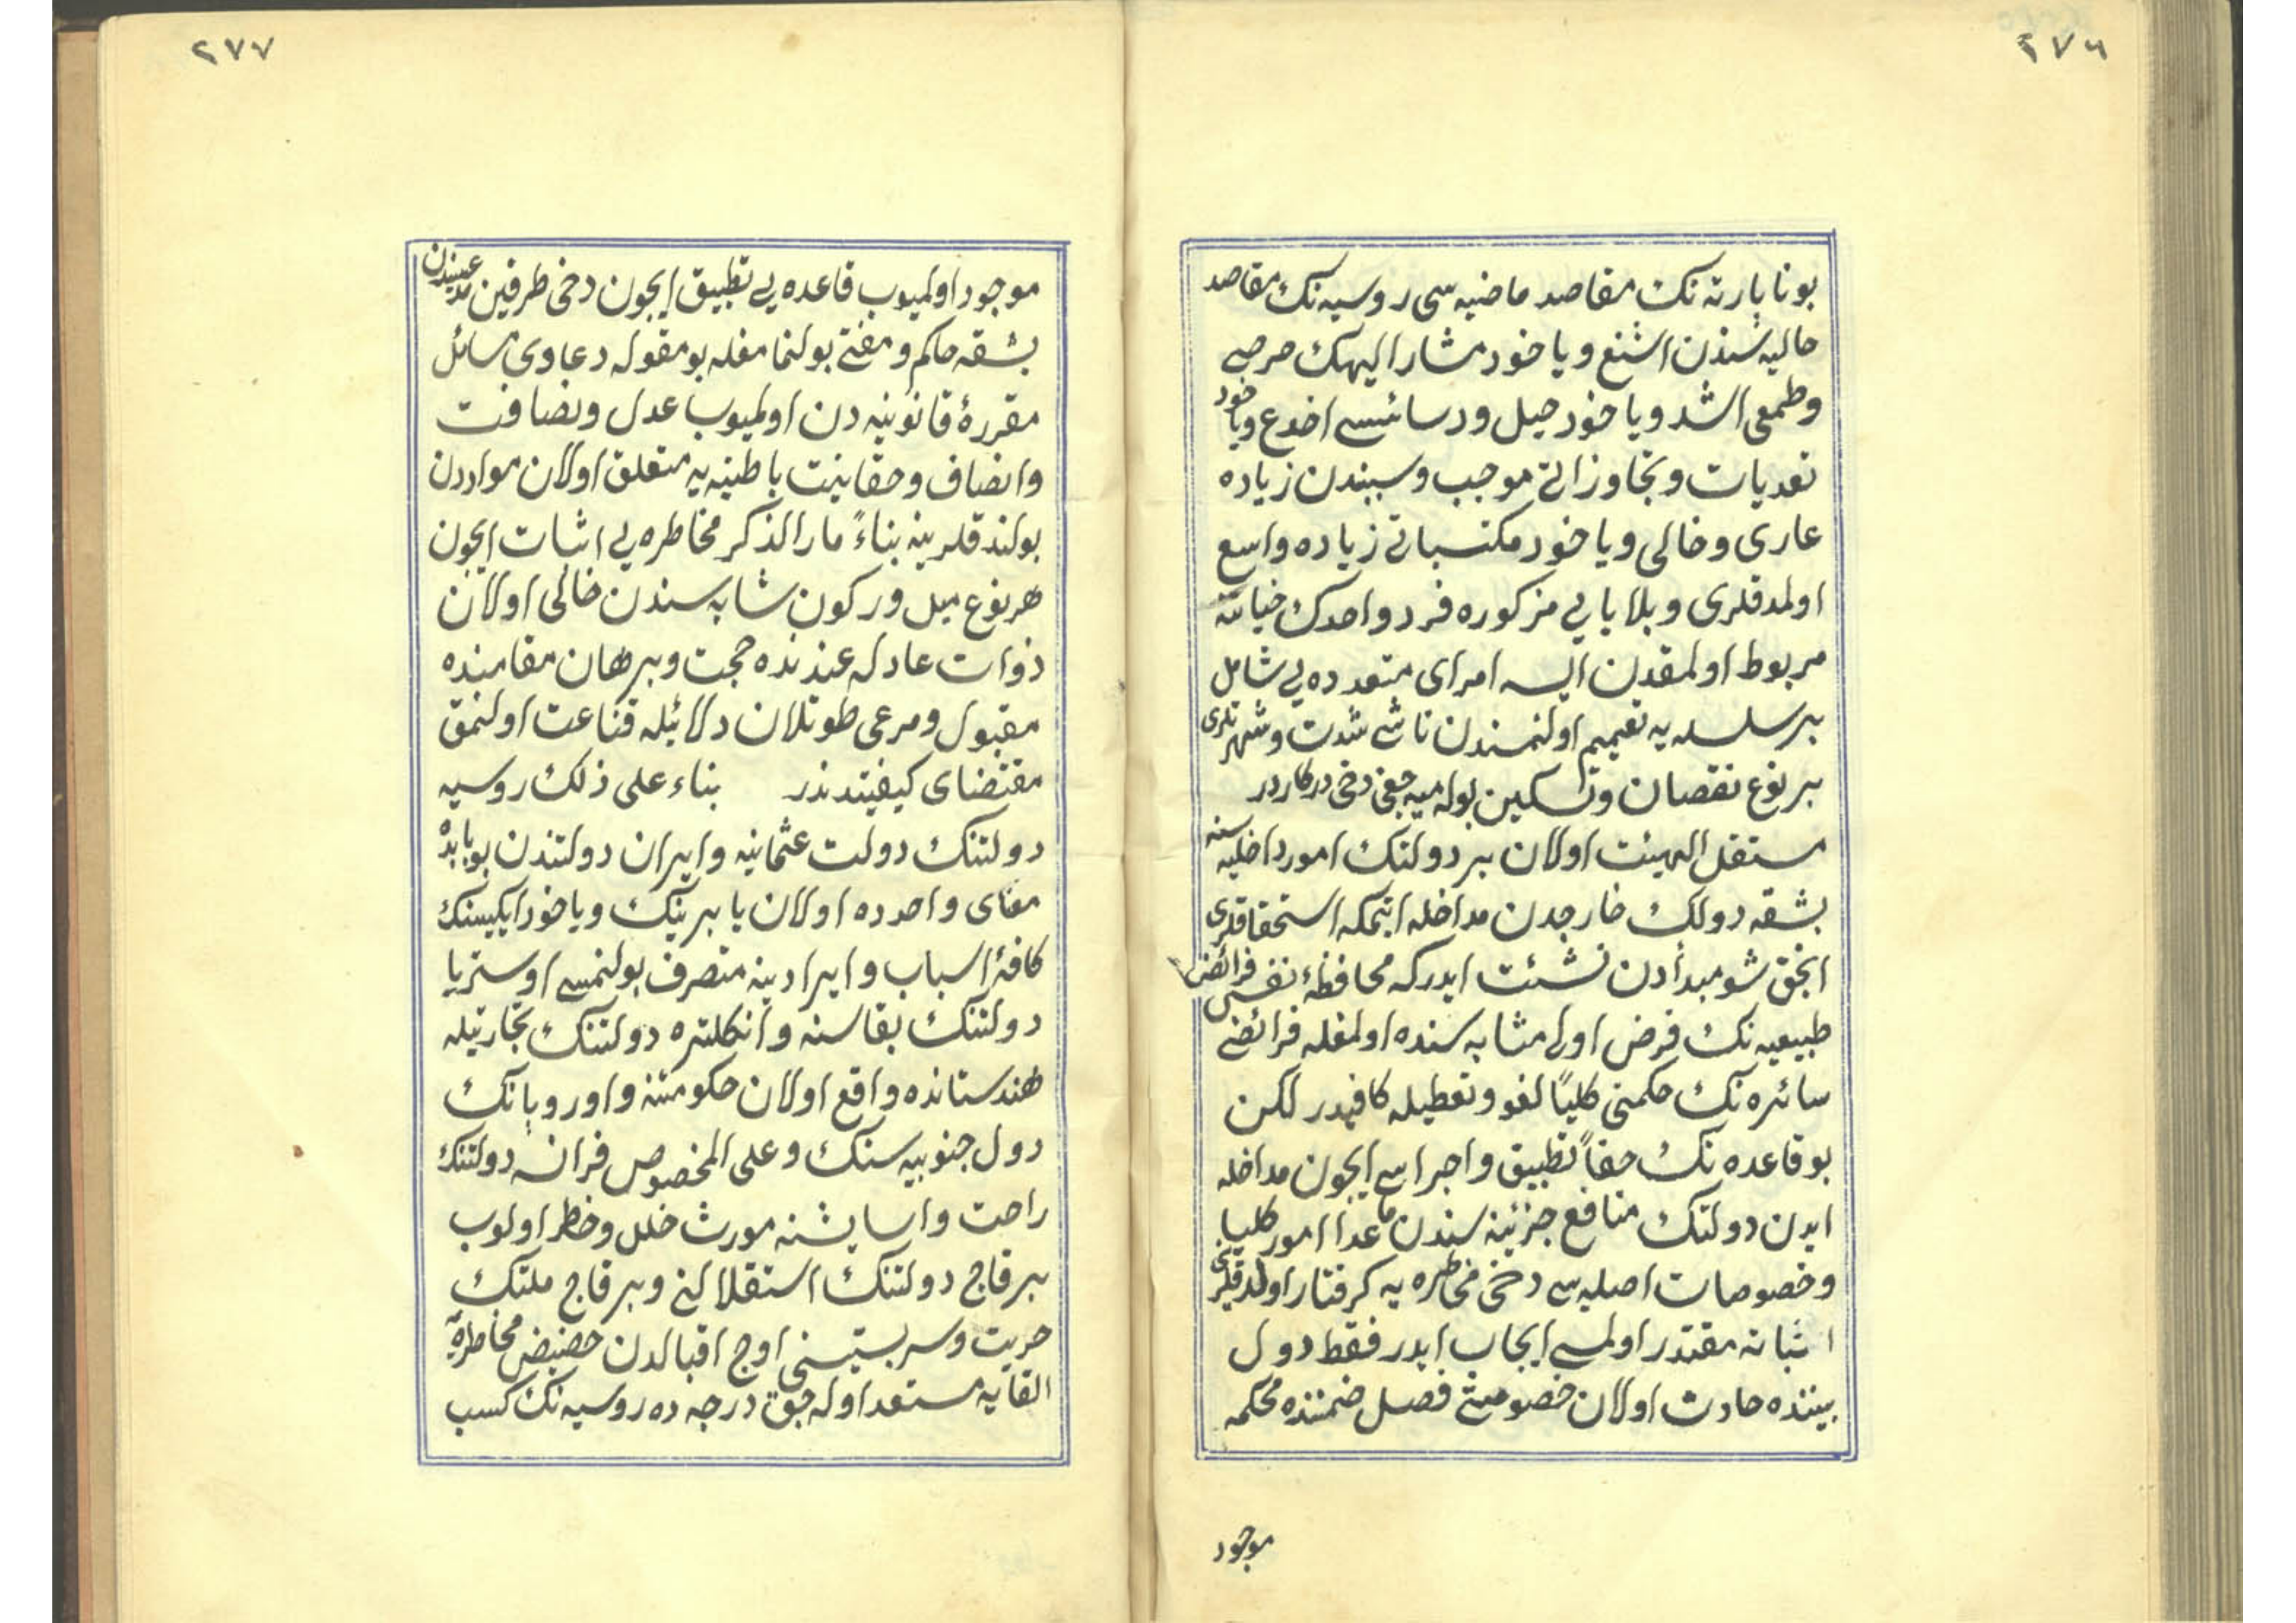 ٢٧٦
بونا پارته نك مقاصد ماضيه سى روسيه نك مقاصد
حاليه سندن اشنع ويا خود مشار اليهك حرصى
وطمعى اشد ويا خود حيل ودسائسى اخدع ويا خود
تعديات وتجاوزاتى موجب وسببندن زياده
عارى وخالى ويا خود مكتسباتى زياده واسع
اولمدقلرى وبلاياى مزكوره فرد واحدك خياتنه
مربوط اولمقدن ايسه امراى متعدده يى شامل
بر سلسله يه تعميم اولنمسندن ناشى شدت وشهرتلرى
بر نوع نقصان وتسكين بوله ميه جغى دخى دركاردر
مستقل الهيئت اولان بر دولتك امور داخليه سنه
بشقه دولك خارجدن مداخله ايتمكه استحقاقلرى
انجق شو مبدأدن نشئت ايدركه محافظهٔ نفس فرائض
طبيعيه نك فرض اولى مثابه سنده اولمغله فرائض
سائره نك حكمنى كلياً لغو وتعطيله كافيدر لكن
بو قاعده نك حقاً تطبيق واجراسى ايچون مداخله
ايدن دولتك منافع جزئيه سندن ماعدا امور كليه
وخصوصات اصليه سى دخى مخاطره يه كرفتار اولدقلرينى
اثباته مقتدر اولمسى ايجاب ايدر فقط دول
بيننده حادث اولان خصوميتى فصل ضمننده محكمه
موجود
٢٧٧
موجود اولميوب قاعده يى تطبيق ايچون دخى طرفين مدعييندن
بشقه حاكم ومفتى بولنمامغله بو مقوله دعاوى مسائل
مقررهٔ قانونيه دن اولميوب عدل ونصافت
وانصاف وحقانيت باطنيه يه متعلق اولان مواردن
بولندقلرينه بناءً مار الذكر مخاطره يى اثبات ايچون
هر نوع ميل وركون شابه سندن خالى اولان
ذوات عادله عندنده حجت وبرهان مقامنده
مقبول ومرعى طوتلان دلائله قناعت اولنمق
مقتضاى كيفيتدندر بناء على ذلك روسيه
دولتنك دولت عثمانيه وايران دولتندن بوبابده
معناى واحدده اولان يا برينك ويا خود ايكيسنك
كافهٔ اسباب وايرادينه متصرف بولنمسى اوستريا
دولتنك بقاسنه وانكلتره دولتنك تجارتيله
هندستانده واقع اولان حكومتنه واوروپانك
دول جنوبيه سنك وعلى الخصوص فرانسه دولتنك
راحت واسايشنه مورث خلل وخطر اولوب
بر قاچ دولتنك استقلالنى وبر قاچ ملتك
حريت وسربستيسنى اوج اقبالدن حضيض مخاطره يه
القايه مستعد اوله جق درجه ده روسيه نك كسب